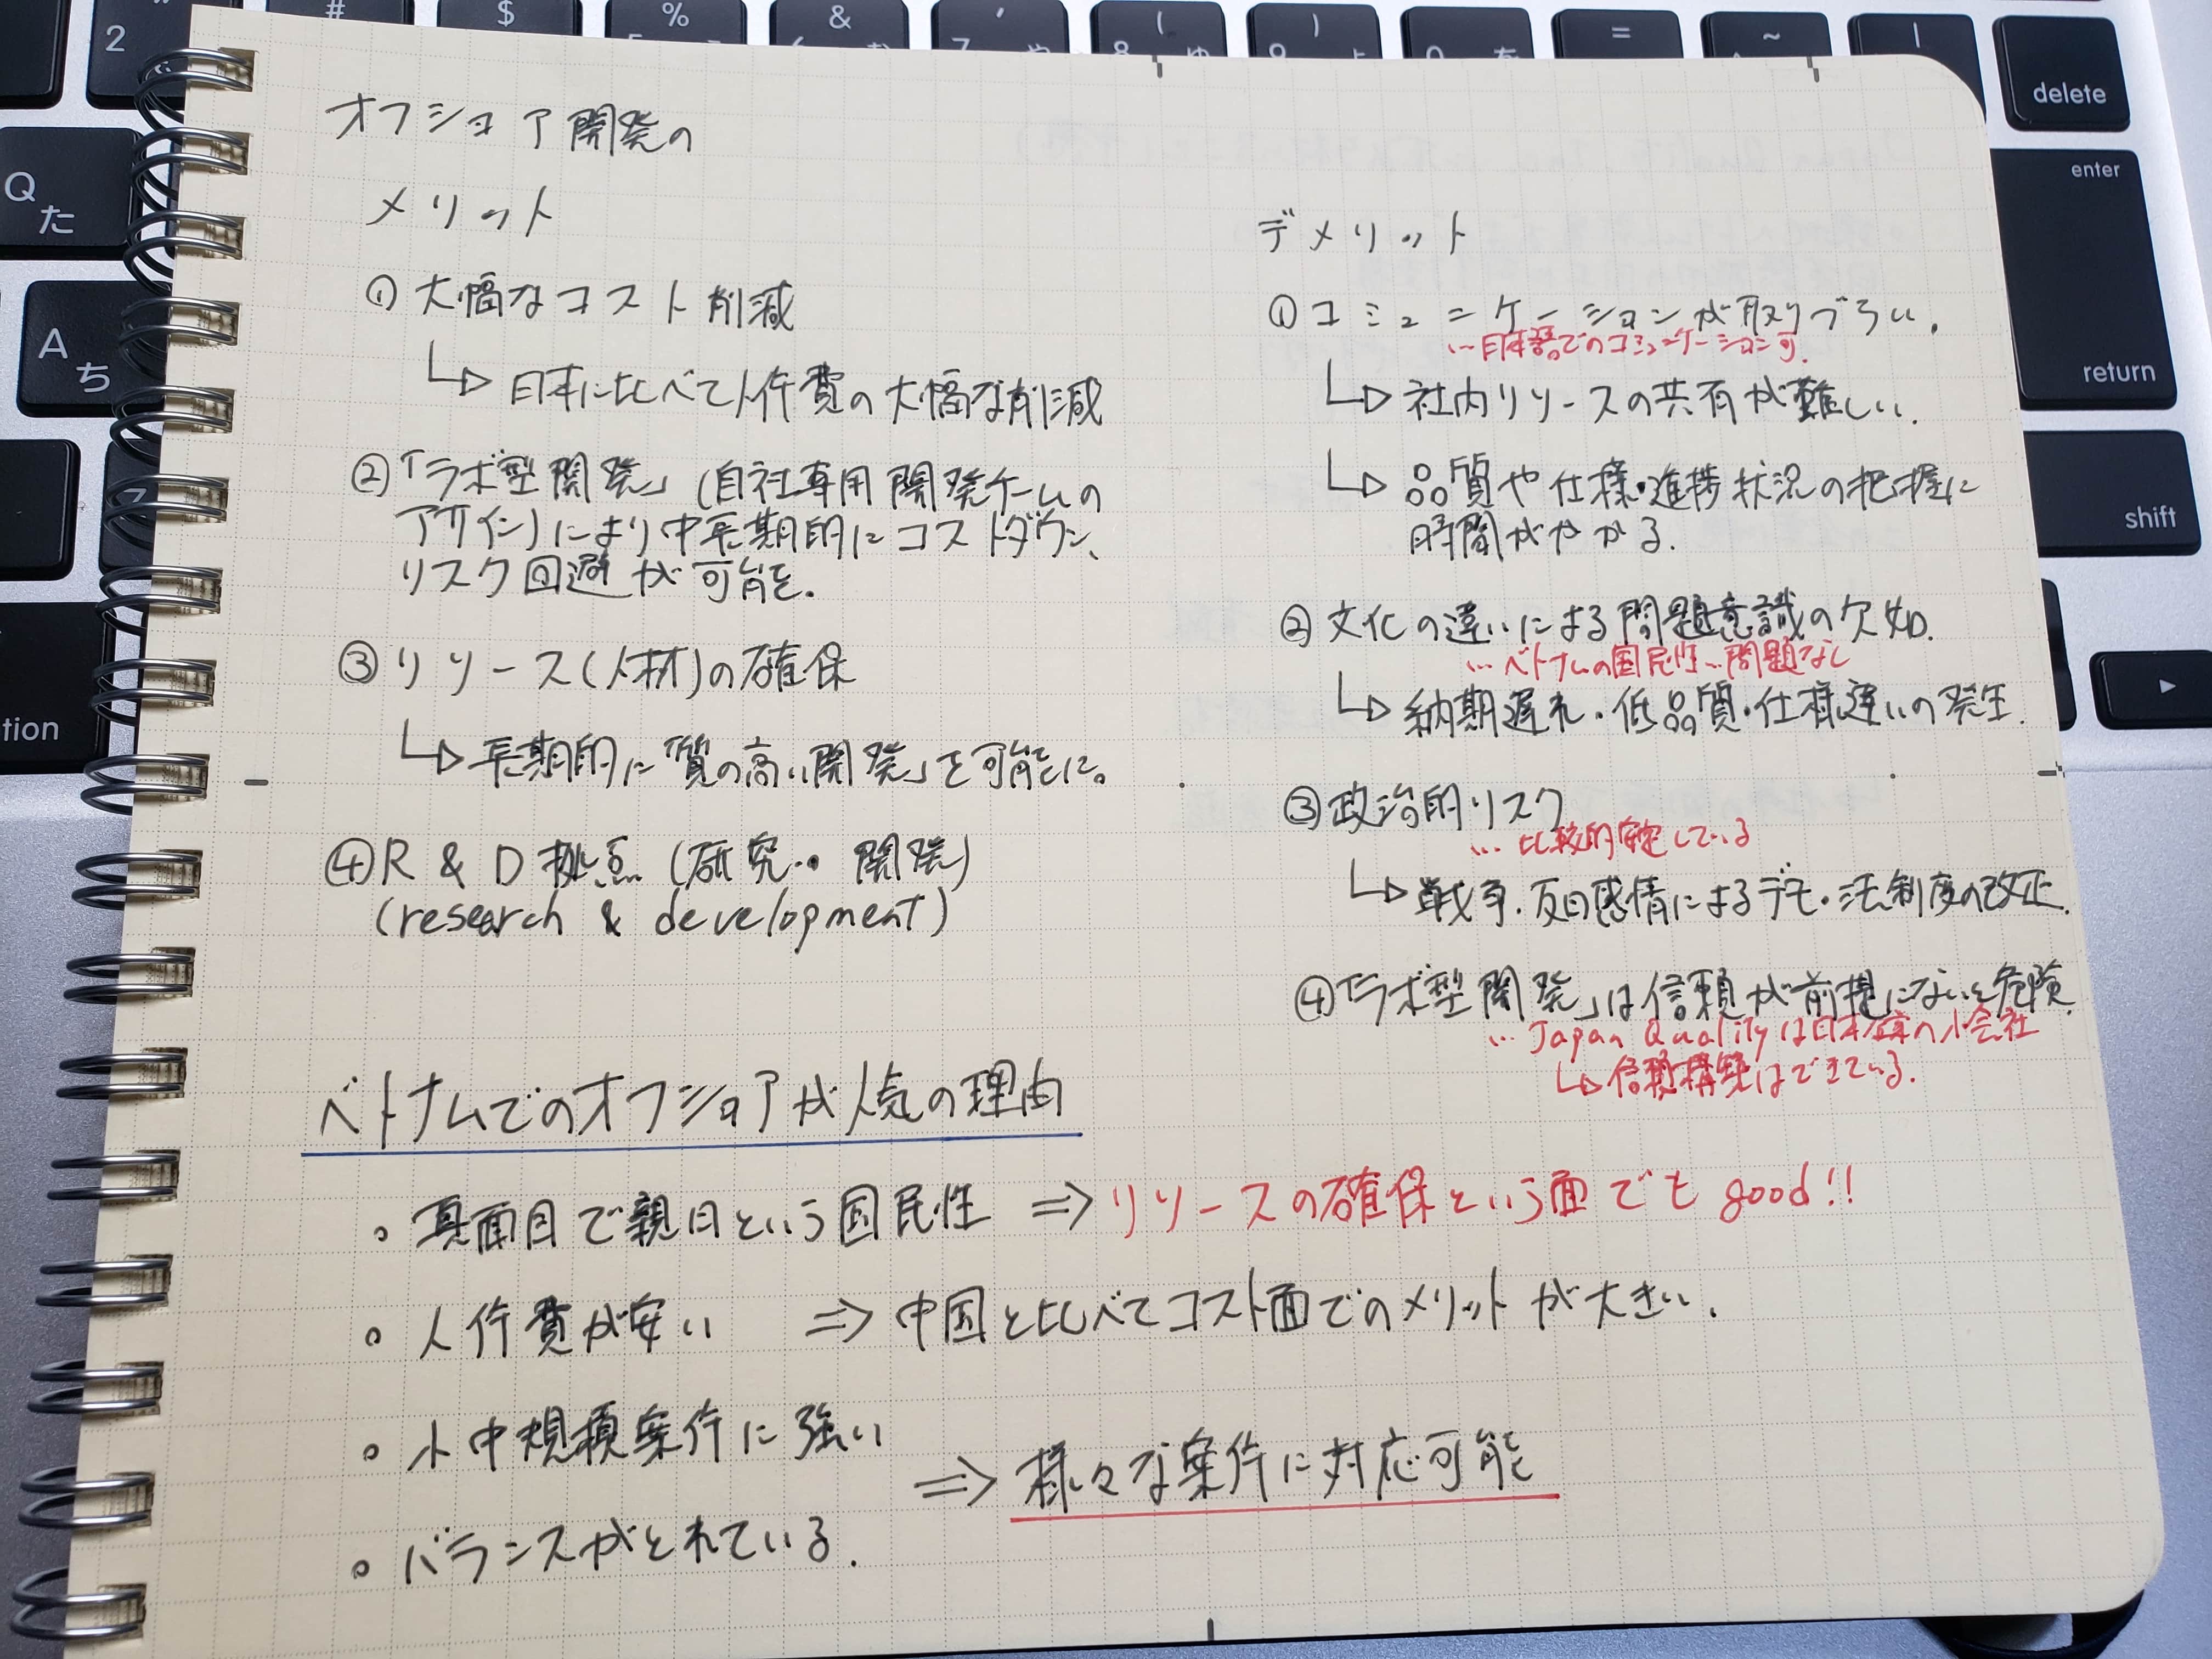 オフショア開発の
メリット
① 大幅なコスト削減
↳ 日本に比べて人件費の大幅な削減
②「ラボ型開発」(自社専用開発チームの
アサイン)により中長期的にコストダウン、
リスク回避が可能.
③ リソース(人材)の確保
↳ 長期的に「質の高い開発」を可能に。
④ R & D 拠点 (研究・開発)
(research & development)
デメリット
① コミュニケーションが取りづらい.
…日本語でのコミュニケーション可.
↳ 社内リソースの共有が難しい.
↳ 品質や仕様・進捗状況の把握に
時間がかかる.
② 文化の違いによる問題意識の欠如.
…ベトナムの国民性…問題なし
↳ 納期遅れ・低品質・仕様違いの発生.
③ 政治的リスク
… 比較的安定している
↳ 戦争・反日感情によるデモ・法制度の改正.
④「ラボ型開発」は信頼が前提にないと危険.
… Japan Qualityは日本の会社
↳ 信頼構築はできている.
ベトナムでのオフショアが人気の理由
。真面目で親日という国民性 ⇒ リソースの確保という面でも good!!
。人件費が安い ⇒ 中国と比べてコスト面でのメリットが大きい.
。小中規模案件に強い
⇒ 様々な案件に対応可能
。バランスがとれている.
2
#
$
%
&
'
(
)
=
~
|
delete
Q
た
enter
return
A
ち
shift
tion